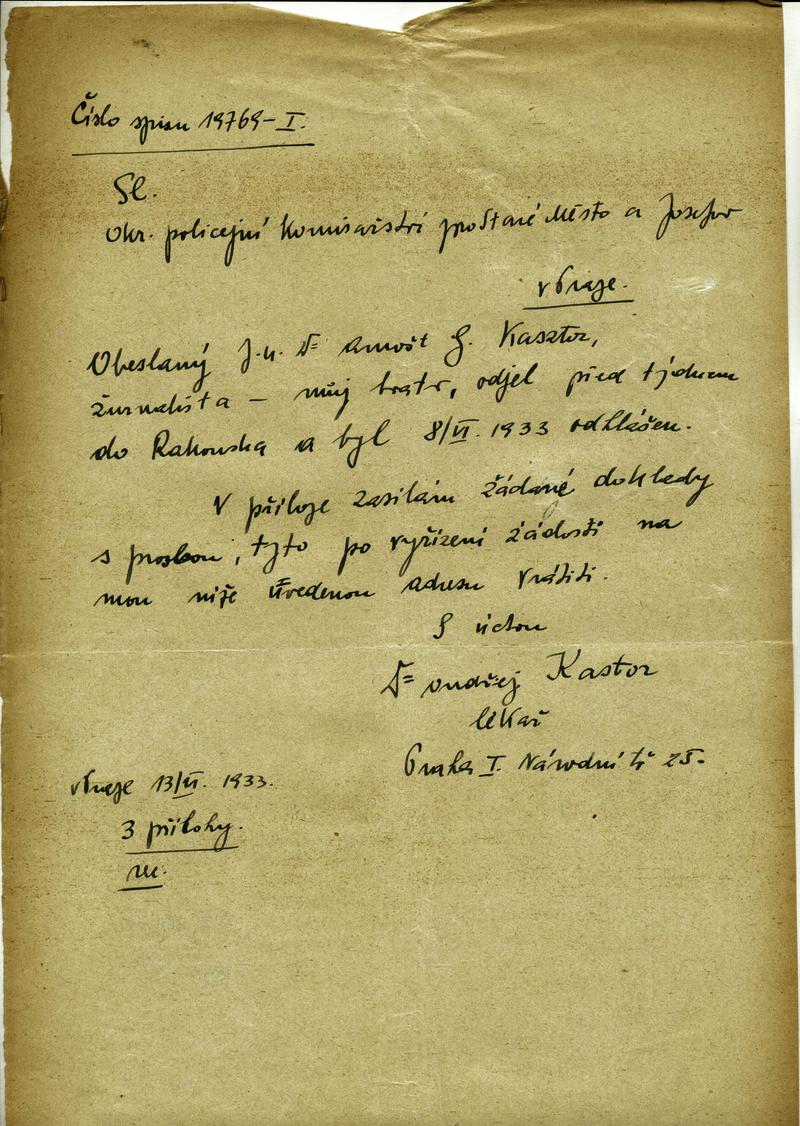 Číslo spisu 19769-I.
Sl.
Okr. policejní komisařství pro Staré Město a Josefov
v Praze.
Obeslaný J.u. Dr Arnošt G. Kasztor,
žurnalista – můj bratr, odjel před týdnem
do Rakouska a byl 8/VI. 1933 odhlášen.
V příloze zasílám žádané doklady
s prosbou, tyto po vyřízení žádosti na
mou níže uvedenou adresu vrátiti.
S úctou
Dr Ondřej Kastor
lékař
Praha I. Národní tř 25.
v Praze 13/VI. 1933.
3 přílohy.